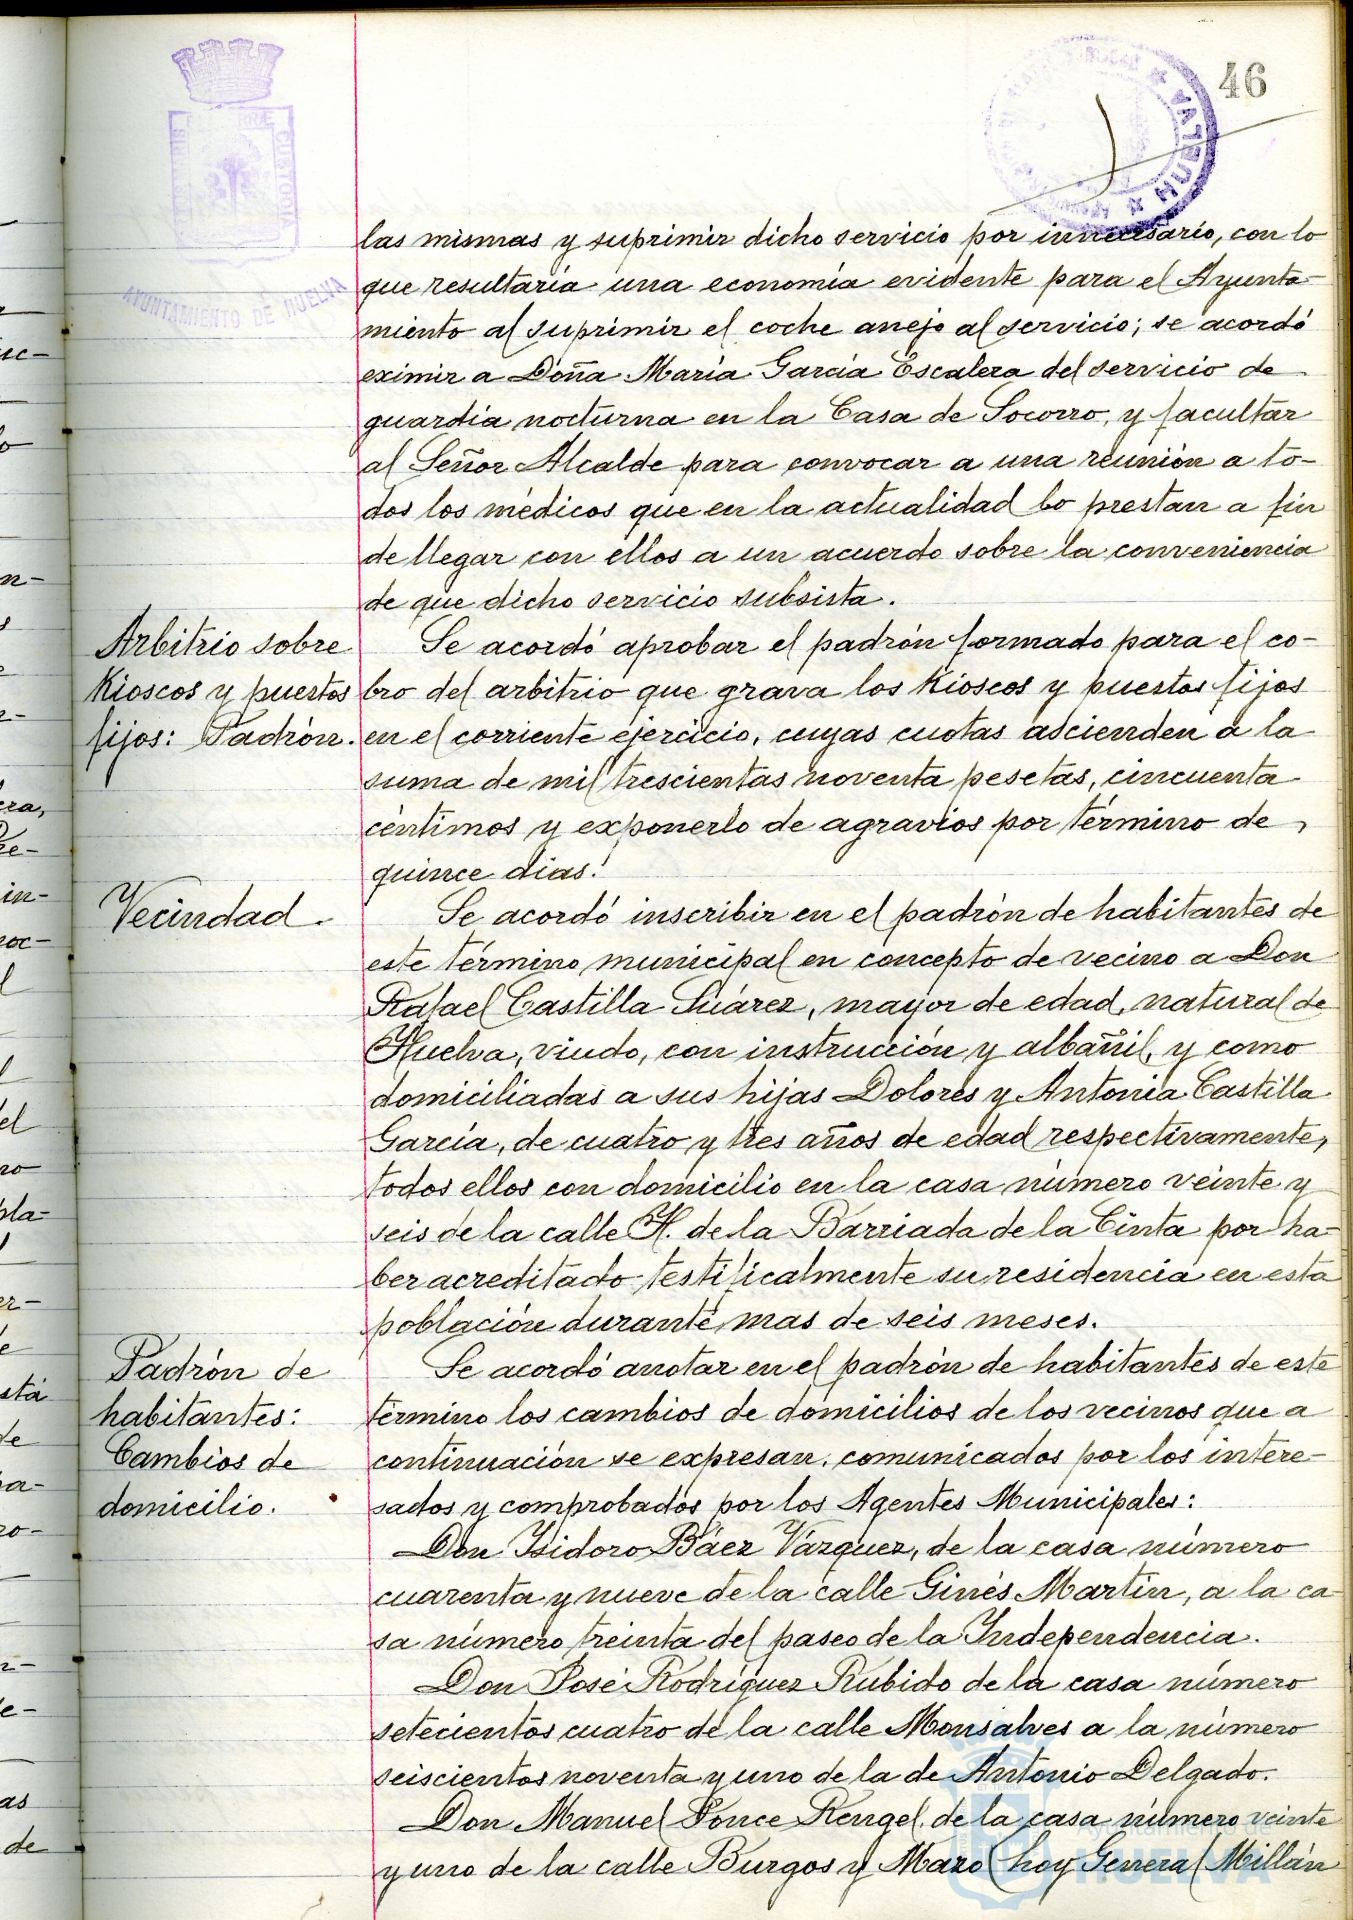 46
HUELVA
AYUNTAMIENTO DE HUELVA
las mismas y suprimir dicho servicio por innecesario, con lo
que resultaría una economía evidente para el Ayunta-
miento al suprimir el coche anejo al servicio; se acordó
eximir a Doña María García Escalera del servicio de
guardia nocturna en la Casa de Socorro, y facultar
al Señor Alcalde para convocar a una reunión a to-
dos los médicos que en la actualidad lo prestan a fin
de llegar con ellos a un acuerdo sobre la conveniencia
de que dicho servicio subsista.
Arbitrio sobre
Kioscos y puestos
fijos: Padrón.
Se acordó aprobar el padrón formado para el co-
bro del arbitrio que grava los Kioscos y puestos fijos
en el corriente ejercicio, cuyas cuotas ascienden a la
suma de mil trescientas noventa pesetas, cincuenta
céntimos y exponerlo de agravios por término de
quince dias.
Vecindad.
Se acordó inscribir en el padrón de habitantes de
este término municipal en concepto de vecino a Don
Rafael Castilla Suárez, mayor de edad, natural de
Huelva, viudo, con instrucción y albañil, y como
domiciliadas a sus hijas Dolores y Antonia Castilla
García, de cuatro y tres años de edad respectivamente,
todos ellos con domicilio en la casa número veinte y
seis de la calle H. de la Barriada de la Cinta por ha-
ber acreditado testificalmente su residencia en esta
población durante mas de seis meses.
Padrón de
habitantes:
Cambios de
domicilio.
Se acordó anotar en el padrón de habitantes de este
término los cambios de domicilios de los vecinos que a
continuación se expresan, comunicados por los intere-
sados y comprobados por los Agentes Municipales:
Don Isidoro Báez Vázquez, de la casa número
cuarenta y nueve de la calle Ginés Martín, a la ca
sa número treinta del paseo de la Independencia.
Don José Rodríguez Rubido de la casa número
setecientos cuatro de la calle Monsalves a la número
seiscientos noventa y uno de la de Antonio Delgado.
Don Manuel Ponce Rengel, de la casa número veinte
y uno de la calle Burgos y Mazo (hoy General Millán
Ayuntamiento de
HUELVA